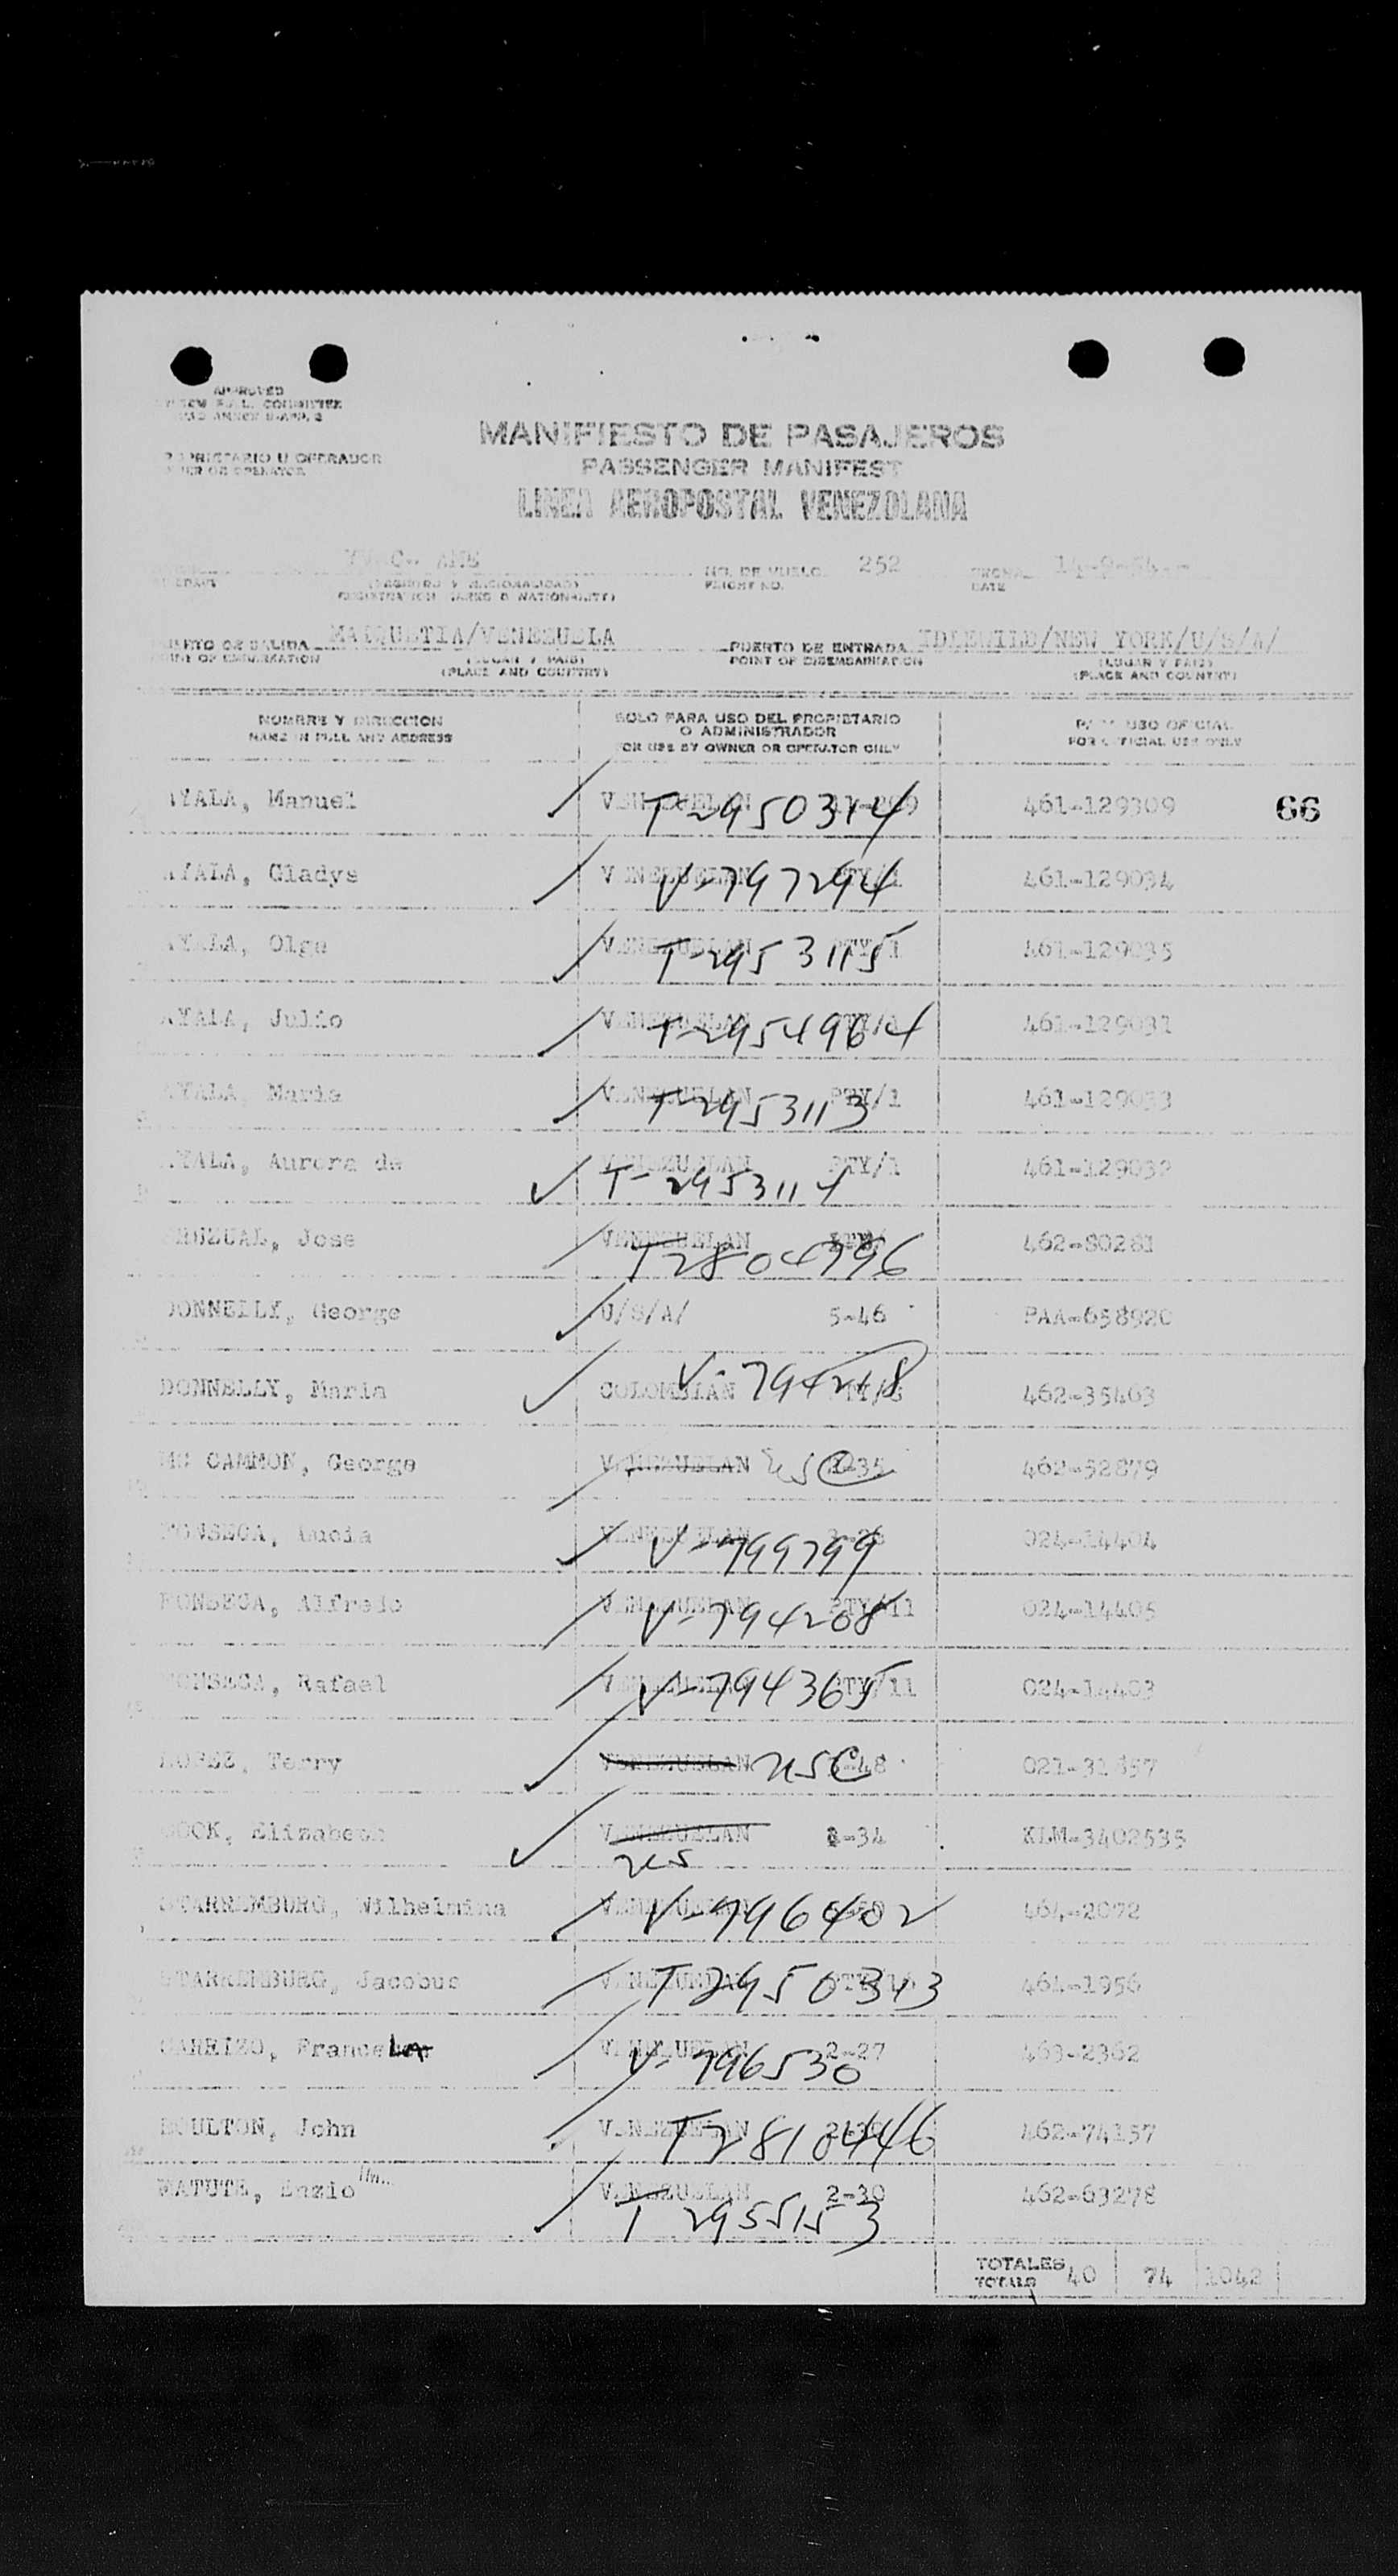 APPROVED
MANIFIESTO DE PASAJEROS
PASSENGER MANIFEST
LINEA AEROPOSTAL VENEZOLANA
U OPERADOR
OR OPERATOR
AME NO. DE VUELO 252
FLIGHT NO. DATE
MAIQUETIA/VENEZUELA PUERTO DE ENTRADA IDLEWILD/NEW YORK/U/S/A/
POINT OF EMBARKATION (LUGAR Y PAIS) POINT OF DISEMBARKATION (LUGAR Y PAIS)
(PLACE AND COUNTRY) (PLACE AND COUNTRY)
NOMBRE Y DIRECCION SOLO PARA USO DEL PROPIETARIO USO OFICIAL
NAME IN FULL AND ADDRESS O ADMINISTRADOR FOR OFFICIAL USE ONLY
FOR USE BY OWNER OR OPERATOR ONLY
AYALA, Manuel T-2950314 461-129309 66
AYALA, Gladys VENEZUELAN V-797294 461-129034
AYALA, Olga VENEZUELAN T-2953115 PTY/1 461-129035
AYALA, Julio VENEZUELAN T-2954964 461-129031
AYALA, Maria VENEZUELAN T-2953113 PTY/1 461-129033
AYALA, Aurora de VENEZUELAN PTY/1 461-129032
T-2953114
Jose VENEZUELAN 462-80281
T2804796
DONNELLY, George U/S/A/ 5-46 PAA-658920
DONNELLY, Maria COLOMBIAN V-794218 462-35403
MC CAMMON, George VENEZUELAN USC 462-52879
FONSECA, Lucia VENEZUELAN V-799799 024-14404
FONSECA, Alfredo VENEZUELAN V-794208 PTY/11 024-14405
FONSECA, Rafael VENEZUELAN V-794365 PTY/11 024-14403
LOPEZ, Terry VENEZUELAN USC 021-31857
COOK, Elizabeth VENEZUELAN 8-34 KLM-3402535
US
STARKEMBURG, Wilhelmina VENEZUELAN V-796402 464-2072
STARKEMBURG, Jacobus VENEZUELAN T2950313 464-1956
CARRIZO, VENEZUELAN 2-27 463-2362
V-796530
BOULTON, John VENEZUELAN T2810446 462-74157
MATUTE, Enzio VENEZUELAN 2-30 462-63278
T 2955153
TOTALES
TOTALS 40 74 1042